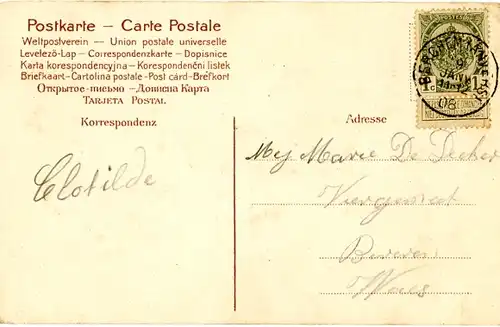 Postkarte – Carte Postale
Weltpostverein – Union postale universelle
Levelező-Lap – Correspondenzkarte – Dopisnice
Karta korespondencyjna – Korespondenční listek
Briefkaart – Cartolina postale – Post card – Brefkort
Открытое-письмо – Дописна Карта
Tarjeta Postal
Korrespondenz
Adresse
Clotilde
Mej Marie De
Beveren
Waes
08